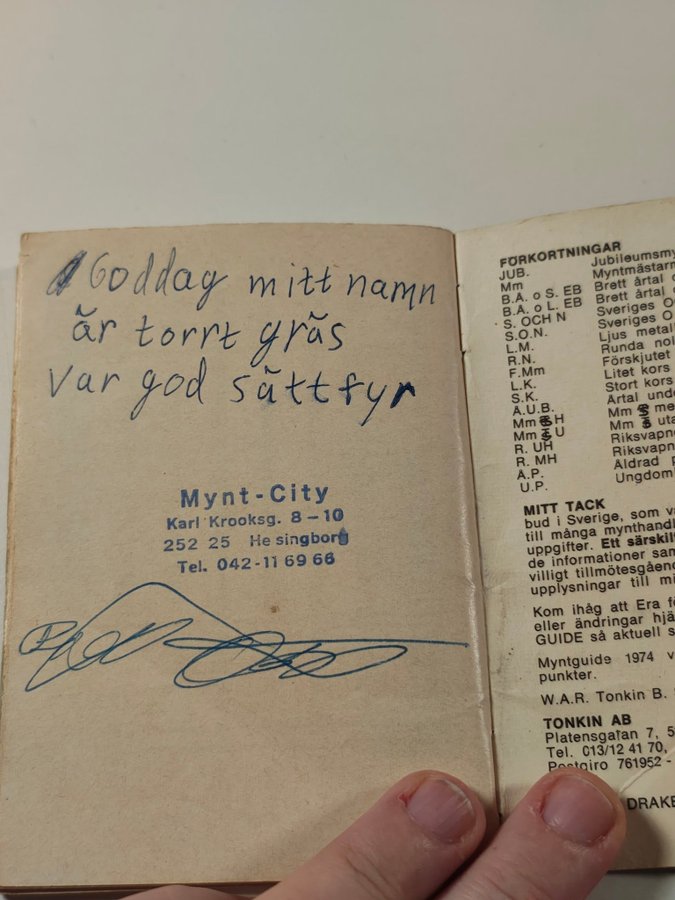 Goddag mitt namn
är torrt gräs
Var god sätt fyr
Mynt-City
Karl Krooksg. 8-10
252 25 He singborg
Tel. 042-11 69 66
FÖRKORTNINGAR
JUB. Jubileumsmy
Mm Myntmästarm
B.Å. o S. EB Brett årtal o
B.Å. o L. EB Brett årtal o
S. OCH N Sveriges Oc
S.O.N. Sveriges O
L.M. Ljus metall
R.N. Runda nol
F.Mm Förskjutet
L.K. Litet kors
S.K. Stort kors
Å.U.B. Årtal unde
Mm H Mm me
Mm U Mm uta
R. UH Riksvapne
R. MH Riksvapn
Ä.P. Äldrad p
U.P. Ungdom
MITT TACK
bud i Sverige, som va
till många mynthandl
uppgifter. Ett särskil
de informationer sam
villigt tillmötesgåen
upplysningar till mi
Kom ihåg att Era fö
eller ändringar hjä
GUIDE så aktuell s
Myntguide 1974 v
punkter.
W.A.R. Tonkin B.
TONKIN AB
Platensgatan 7, 5
Tel. 013/12 41 70,
Postgiro 761952 -
DRAKE